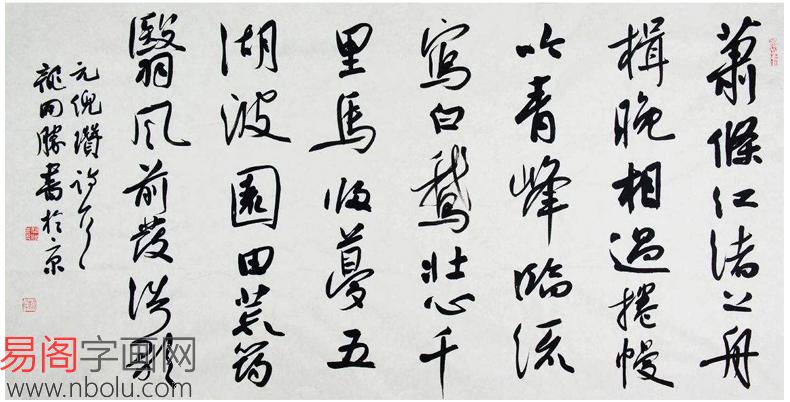 蕭條江渚上舟
楫晚相過捲幔
吟青峰臨流
寫白鵝壯心千
里馬歸夢五
湖波園田荒筠
翳風前發浩歌
元倪瓚詩一首
龍開勝書於京
易阁字画网
www.nbolu.com